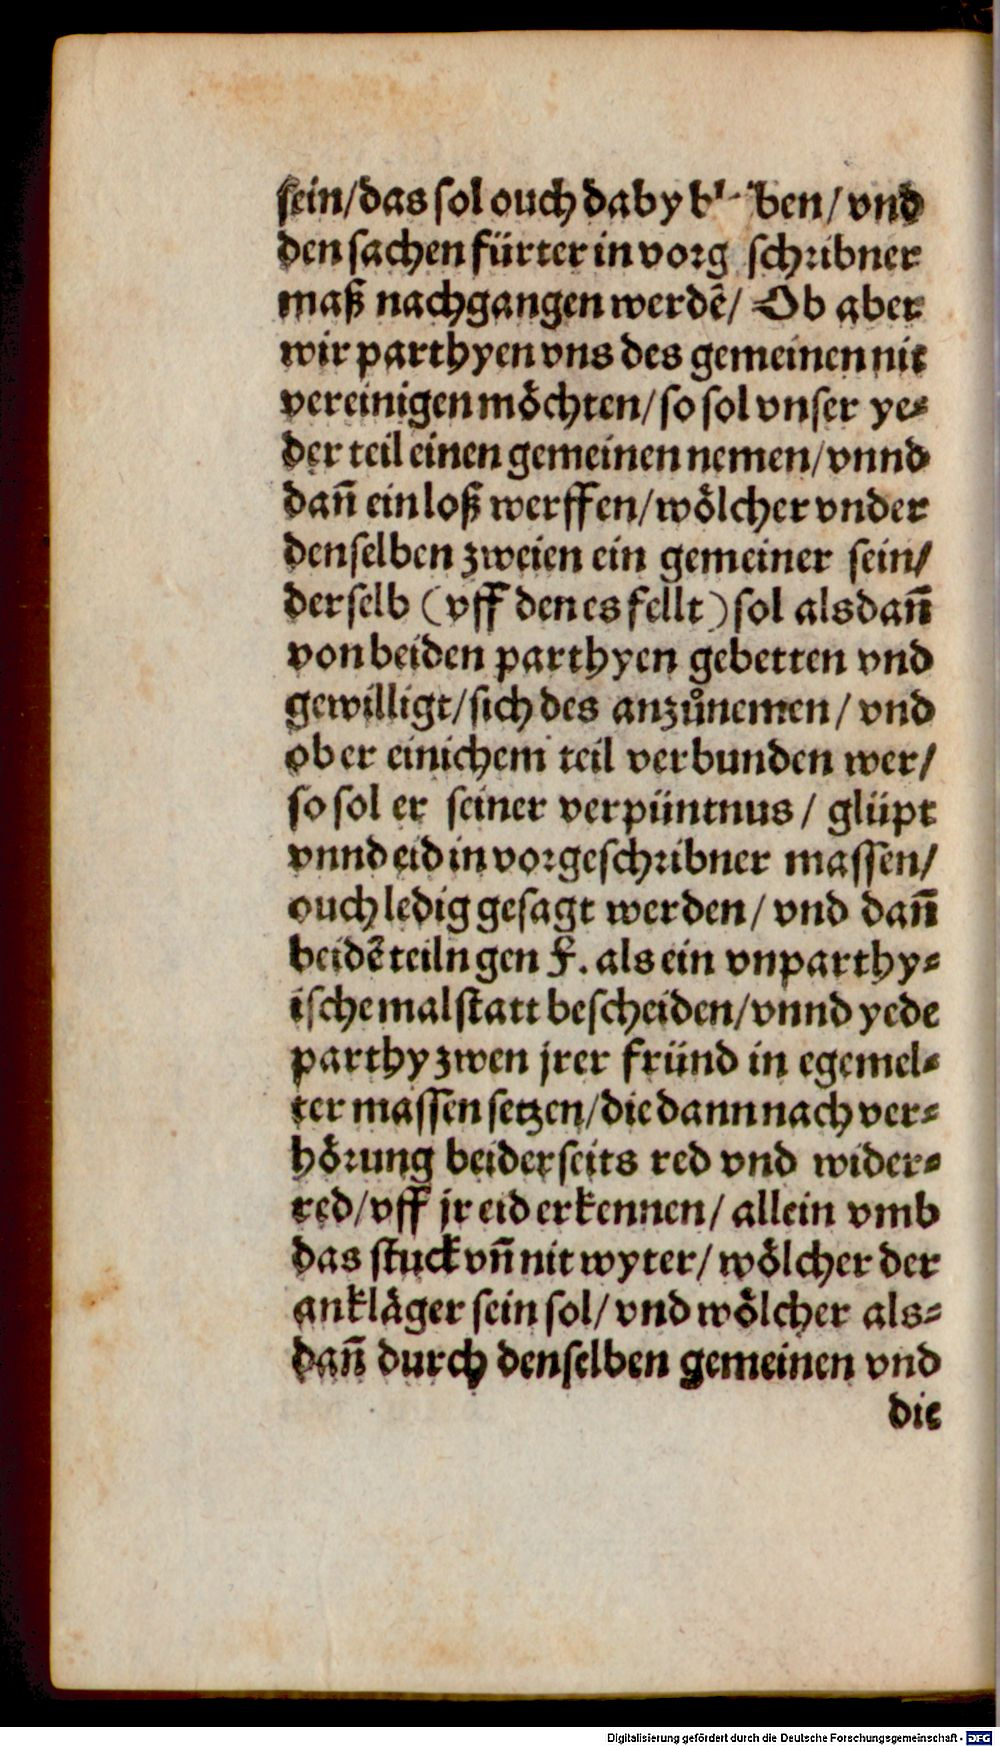 sein/das sol ouch daby ben/vnd
den sachen fürter in vorg schribner
maß nachgangen werdẽ/ Ob aber
wir parthyen vns des gemeinen nit
vereinigen möchten/so sol vnser ye-
der teil einen gemeinen nemen/vnnd
dañ ein loß werffen/wölcher vnder
denselben zweien ein gemeiner sein/
derselb (vff den es fellt) sol alsdañ
von beiden parthyen gebetten vnd
gewilligt/sich des anzůnemen/ vnd
ob er einichem teil verbunden wer/
so sol er seiner verpüntnus/ glüpt
vnnd eid in vorgeschribner massen/
ouch ledig gesagt werden/ vnd dañ
beidẽ teiln gen F. als ein vnparthy-
ische malstatt bescheiden/vnnd yede
parthy zwen jrer fründ in egemel-
ter massen setzen/die dann nach ver-
hörung beiderseits red vnd wider-
red/vff jr eid erkennen/ allein vmb
das stuck vñ nit wyter/ wölcher der
ankläger sein sol/ vnd wölcher als-
dañ durch denselben gemeinen vnd
die
Digitalisierung gefördert durch die Deutsche Forschungsgemeinschaft - DFG